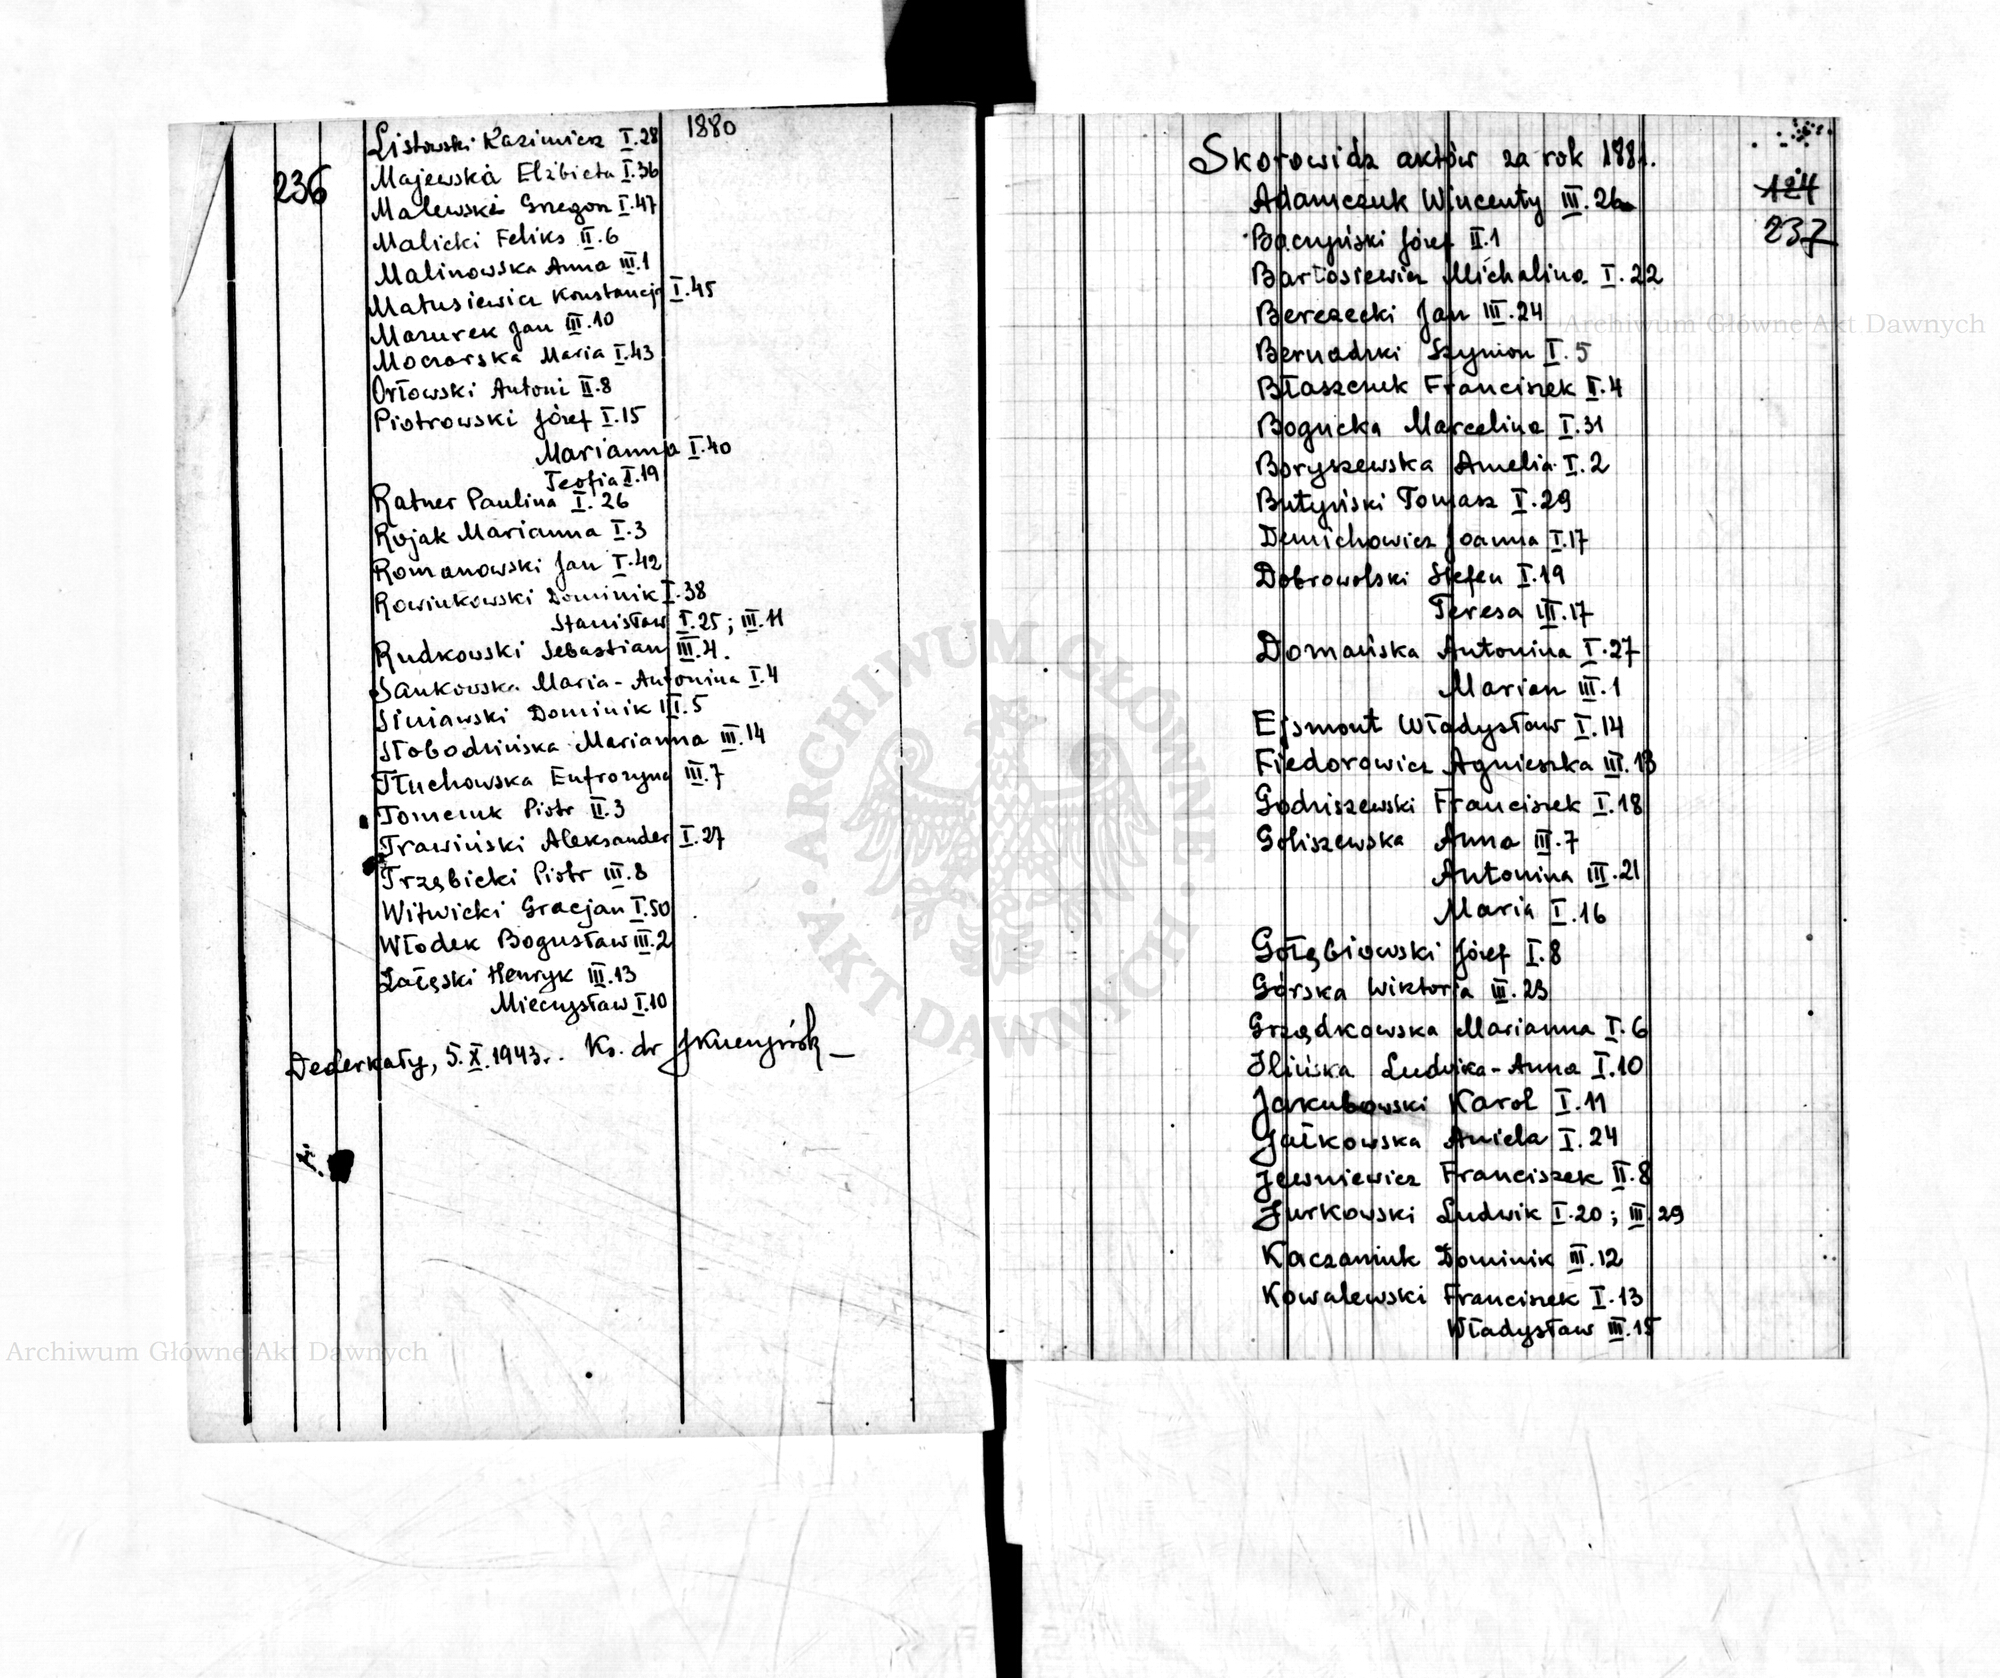 1880
236
Listowski Kazimierz I.28
Majewska Elżbieta I.36
Malewski Grzegorz I.47
Malicki Feliks II.6
Malinowska Anna III.1
Matusiewicz Konstancja I.45
Mazurek Jan III.10
Moczarska Maria I.43
Orłowski Antoni II.8
Piotrowski Józef I.15
Marianna I.40
Teofia I.19
Ratner Paulina I.26
Rojak Marianna I.3
Romanowski Jan I.42
Rowinkowski Dominik I.38
Stanisław I.25; III.11
Rudkowski Sebastian III.4.
Sankowska Maria-Antonina I.4
Siniawski Dominik III.5
Słobodzińska Marianna III.14
Tłuchowska Eufrozyna III.7
Tomczuk Piotr II.3
Trawiński Aleksander I.27
Trzębicki Piotr III.8
Witwicki Gracjan I.50
Włodek Bogusław III.2
Załęski Henryk III.13
Mieczysław I.10
Dederkały, 5.X.1943r. Ks. dr
Skorowidz aktów za rok 1881.
124
237
Adamczuk Wincenty III.26
Baczyński Józef II.1
Bartosiewicz Michalina I.22
Berezecki Jan III.24
Bernadzki Szymon I.5
Błaszczuk Franciszek II.4
Bogucka Marcelina I.31
Boryszewska Amelia I.2
Butyński Tomasz I.29
Demichowicz Joanna I.17
Dobrowolski Stefen I.19
Teresa III.17
Domańska Antonina I.27
Marian III.1
Ejsmont Władysław I.14
Fiedorowicz Agnieszka III.13
Godziszewski Franciszek I.18
Goliszewska Anna III.7
Antonina III.21
Maria I.16
Gołębiowski Józef I.8
Górska Wiktoria III.23
Grządkowska Marianna I.6
Ilińska Ludwika-Anna I.10
Jakubowski Karol I.11
Jałkowska Aniela I.24
Jewniewicz Franciszek II.8
Jurkowski Ludwik I.20; III.29
Kaczaniuk Dominik III.12
Kowalewski Franciszek I.13
Władysław III.15
Archiwum Główne Akt Dawnych
Archiwum Główne Akt Dawnych
ARCHIWUM GŁÓWNE
AKT DAWNYCH